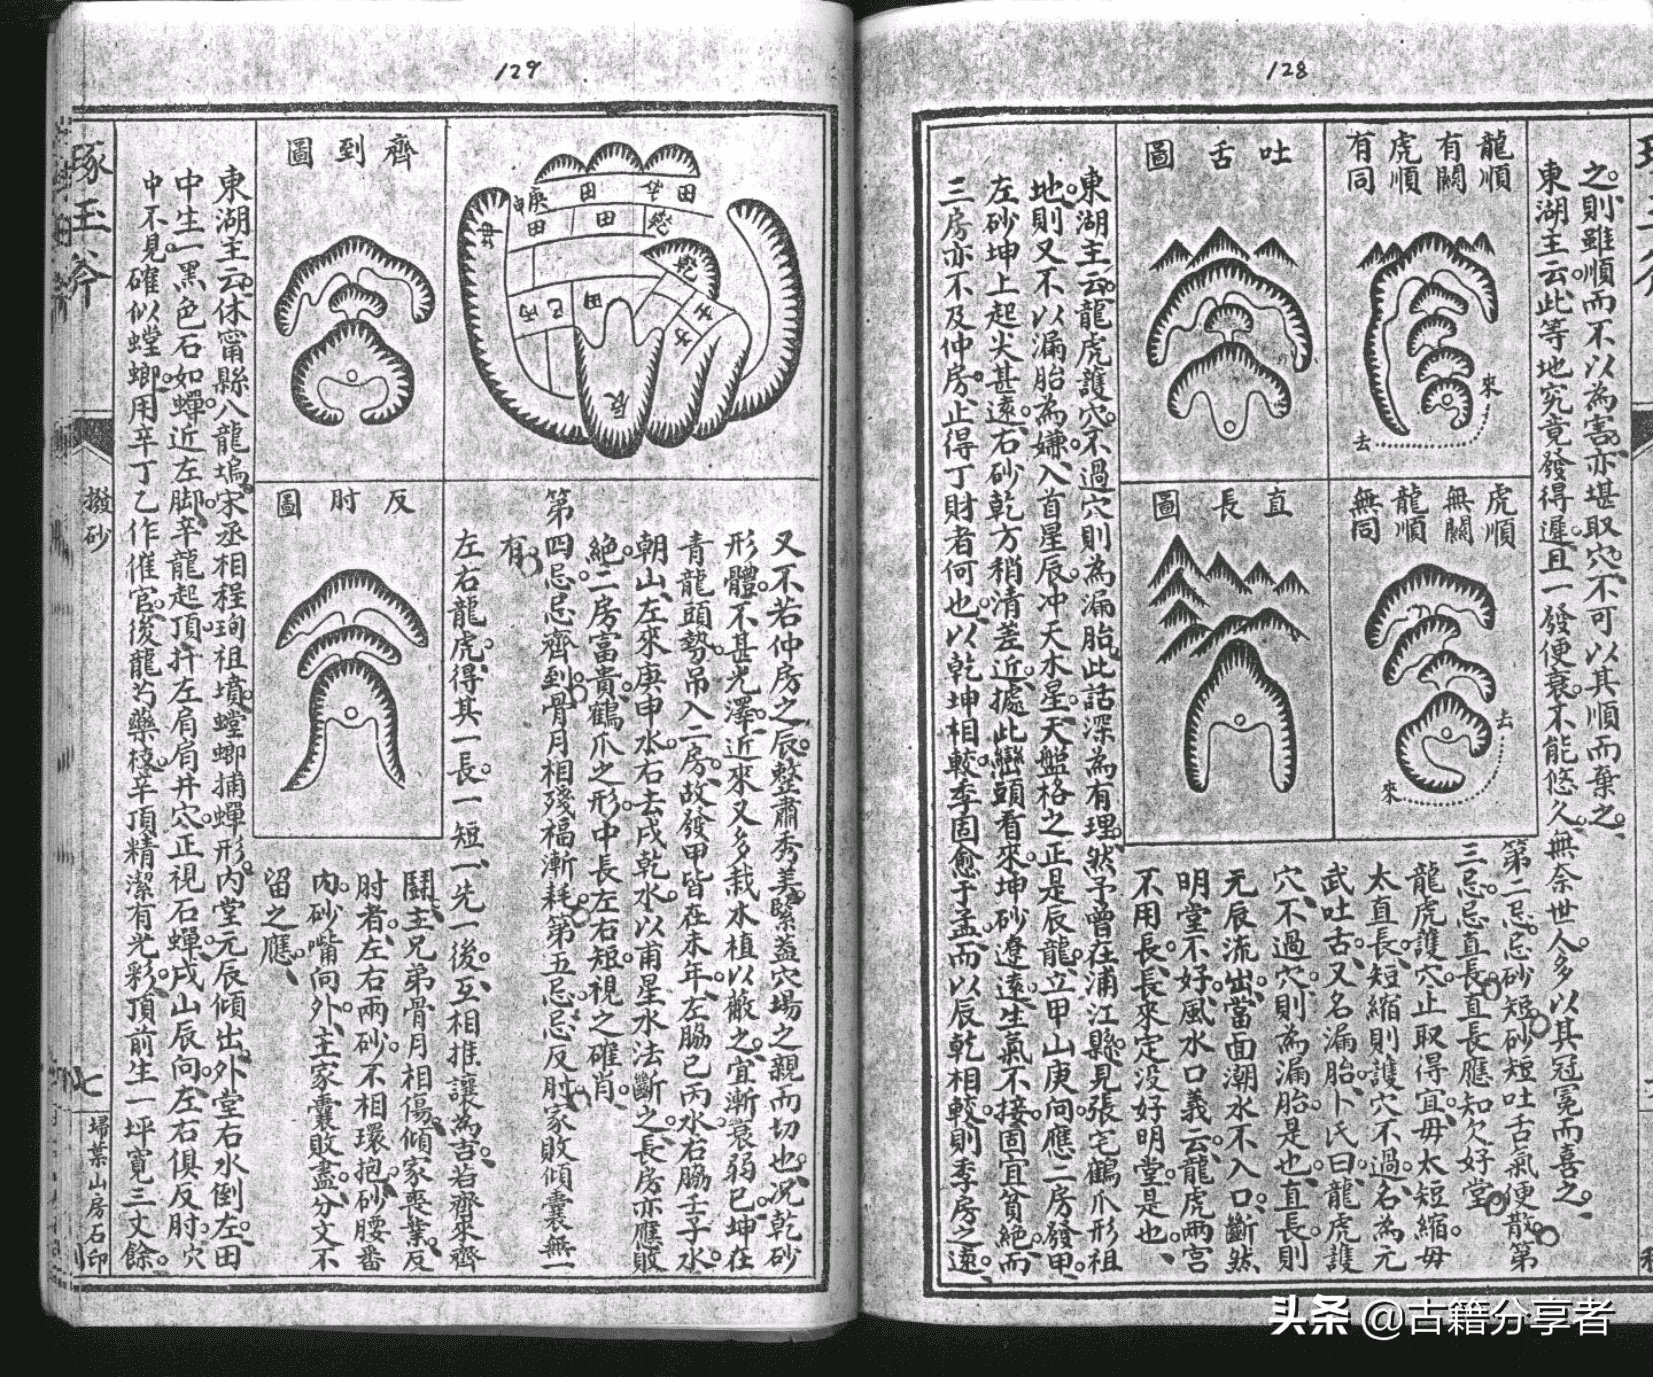 128
之則雖順而不以為害亦堪取穴不可以其順而棄之
東湖主云此等地究竟發得遲且一發便衰不能悠久無奈世人多以其冠冕而喜之
龍順
有關
虎順
有同
來
去
虎順
無關
龍順
無同
去
來
吐舌圖
直長圖
第二忌忌砂短砂短吐舌氣便散第
三忌忌直長直長應知欠好堂
龍虎護穴止取得宜毋太短縮毋
太直長短縮則護穴不過名為元
武吐舌又名漏胎卜氏曰龍虎護
穴不過穴則為漏胎是也直長則
元辰流出當面潮水不入口斷然
明堂不好風水口義云龍虎兩宮
不用長長來定沒好明堂是也
東湖主云龍虎護穴不過穴則為漏胎此話深為有理然予曾在浦江縣見張宅鶴爪形祖
地則又不以漏胎為嫌入首星辰冲天木星天盤格之正是辰龍立甲山庚向應二房發甲
左砂坤上起尖甚遠右砂乾方稍清差近據此巒頭看來坤砂遼遠生氣不接固宜貧絶而
三房亦不及仲房止得丁財者何也以乾坤相較季固愈于孟而以辰乾相較則季房之遠
129
田
田
乾
田
庚
申
田
乾
丙
巳
田
辰
又不若仲房之辰整肅秀美緊蓋穴場之親而切也况乾砂
形體不甚光澤近來又多栽水植以蔽之宜漸衰弱已坤在
青龍頭勢吊入二房故發甲皆在未年左脇巳丙水右脇壬子水
朝山左來庚申水右去戌乾水以甫星水法斷之長房亦應敗
絶二房富貴鶴爪之形中長左右短視之確肖
第四忌忌齊到骨月相殘福漸耗第五忌忌反肘家敗傾囊無一
有
左右龍虎得其一長一短一先一後互相推讓為吉若齊來齊
鬪主兄弟骨月相傷傾家喪業反
肘者左右兩砂不相環抱砂腰番
内砂嘴向外主家囊敗盡分文不
留之應
齊到圖
反肘圖
東湖主云休甯縣八龍塢宋丞相程珣祖墳螳螂捕蟬形内堂元辰傾出外堂右水倒左田
中生一黑色石如蟬近左脚辛龍起頂扦左肩肩井穴正視石蟬戌山辰向左右俱反肘穴
中不見確似螳螂用辛丁乙作催官後龍芍藥枝辛頂精潔有光彩頂前生一坪寬三丈餘
琢玉斧
撥砂
七
埽葉山房石印
头条 @古籍分享者